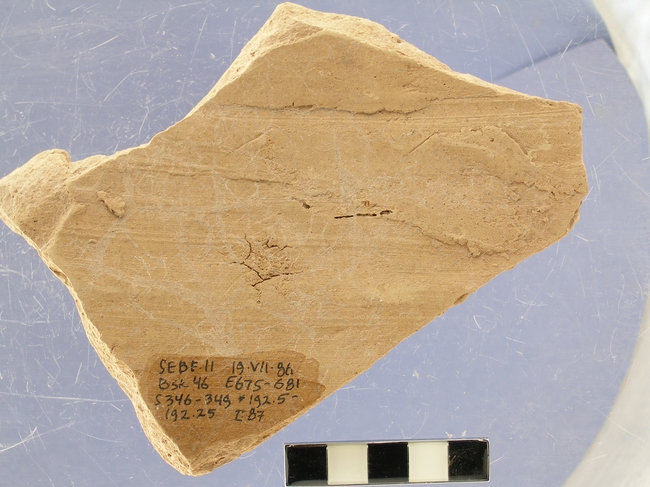 SEBE.11 19.VII.86
Bsk 46 E675-681
S346-349 *192.5-
192.25 I-87